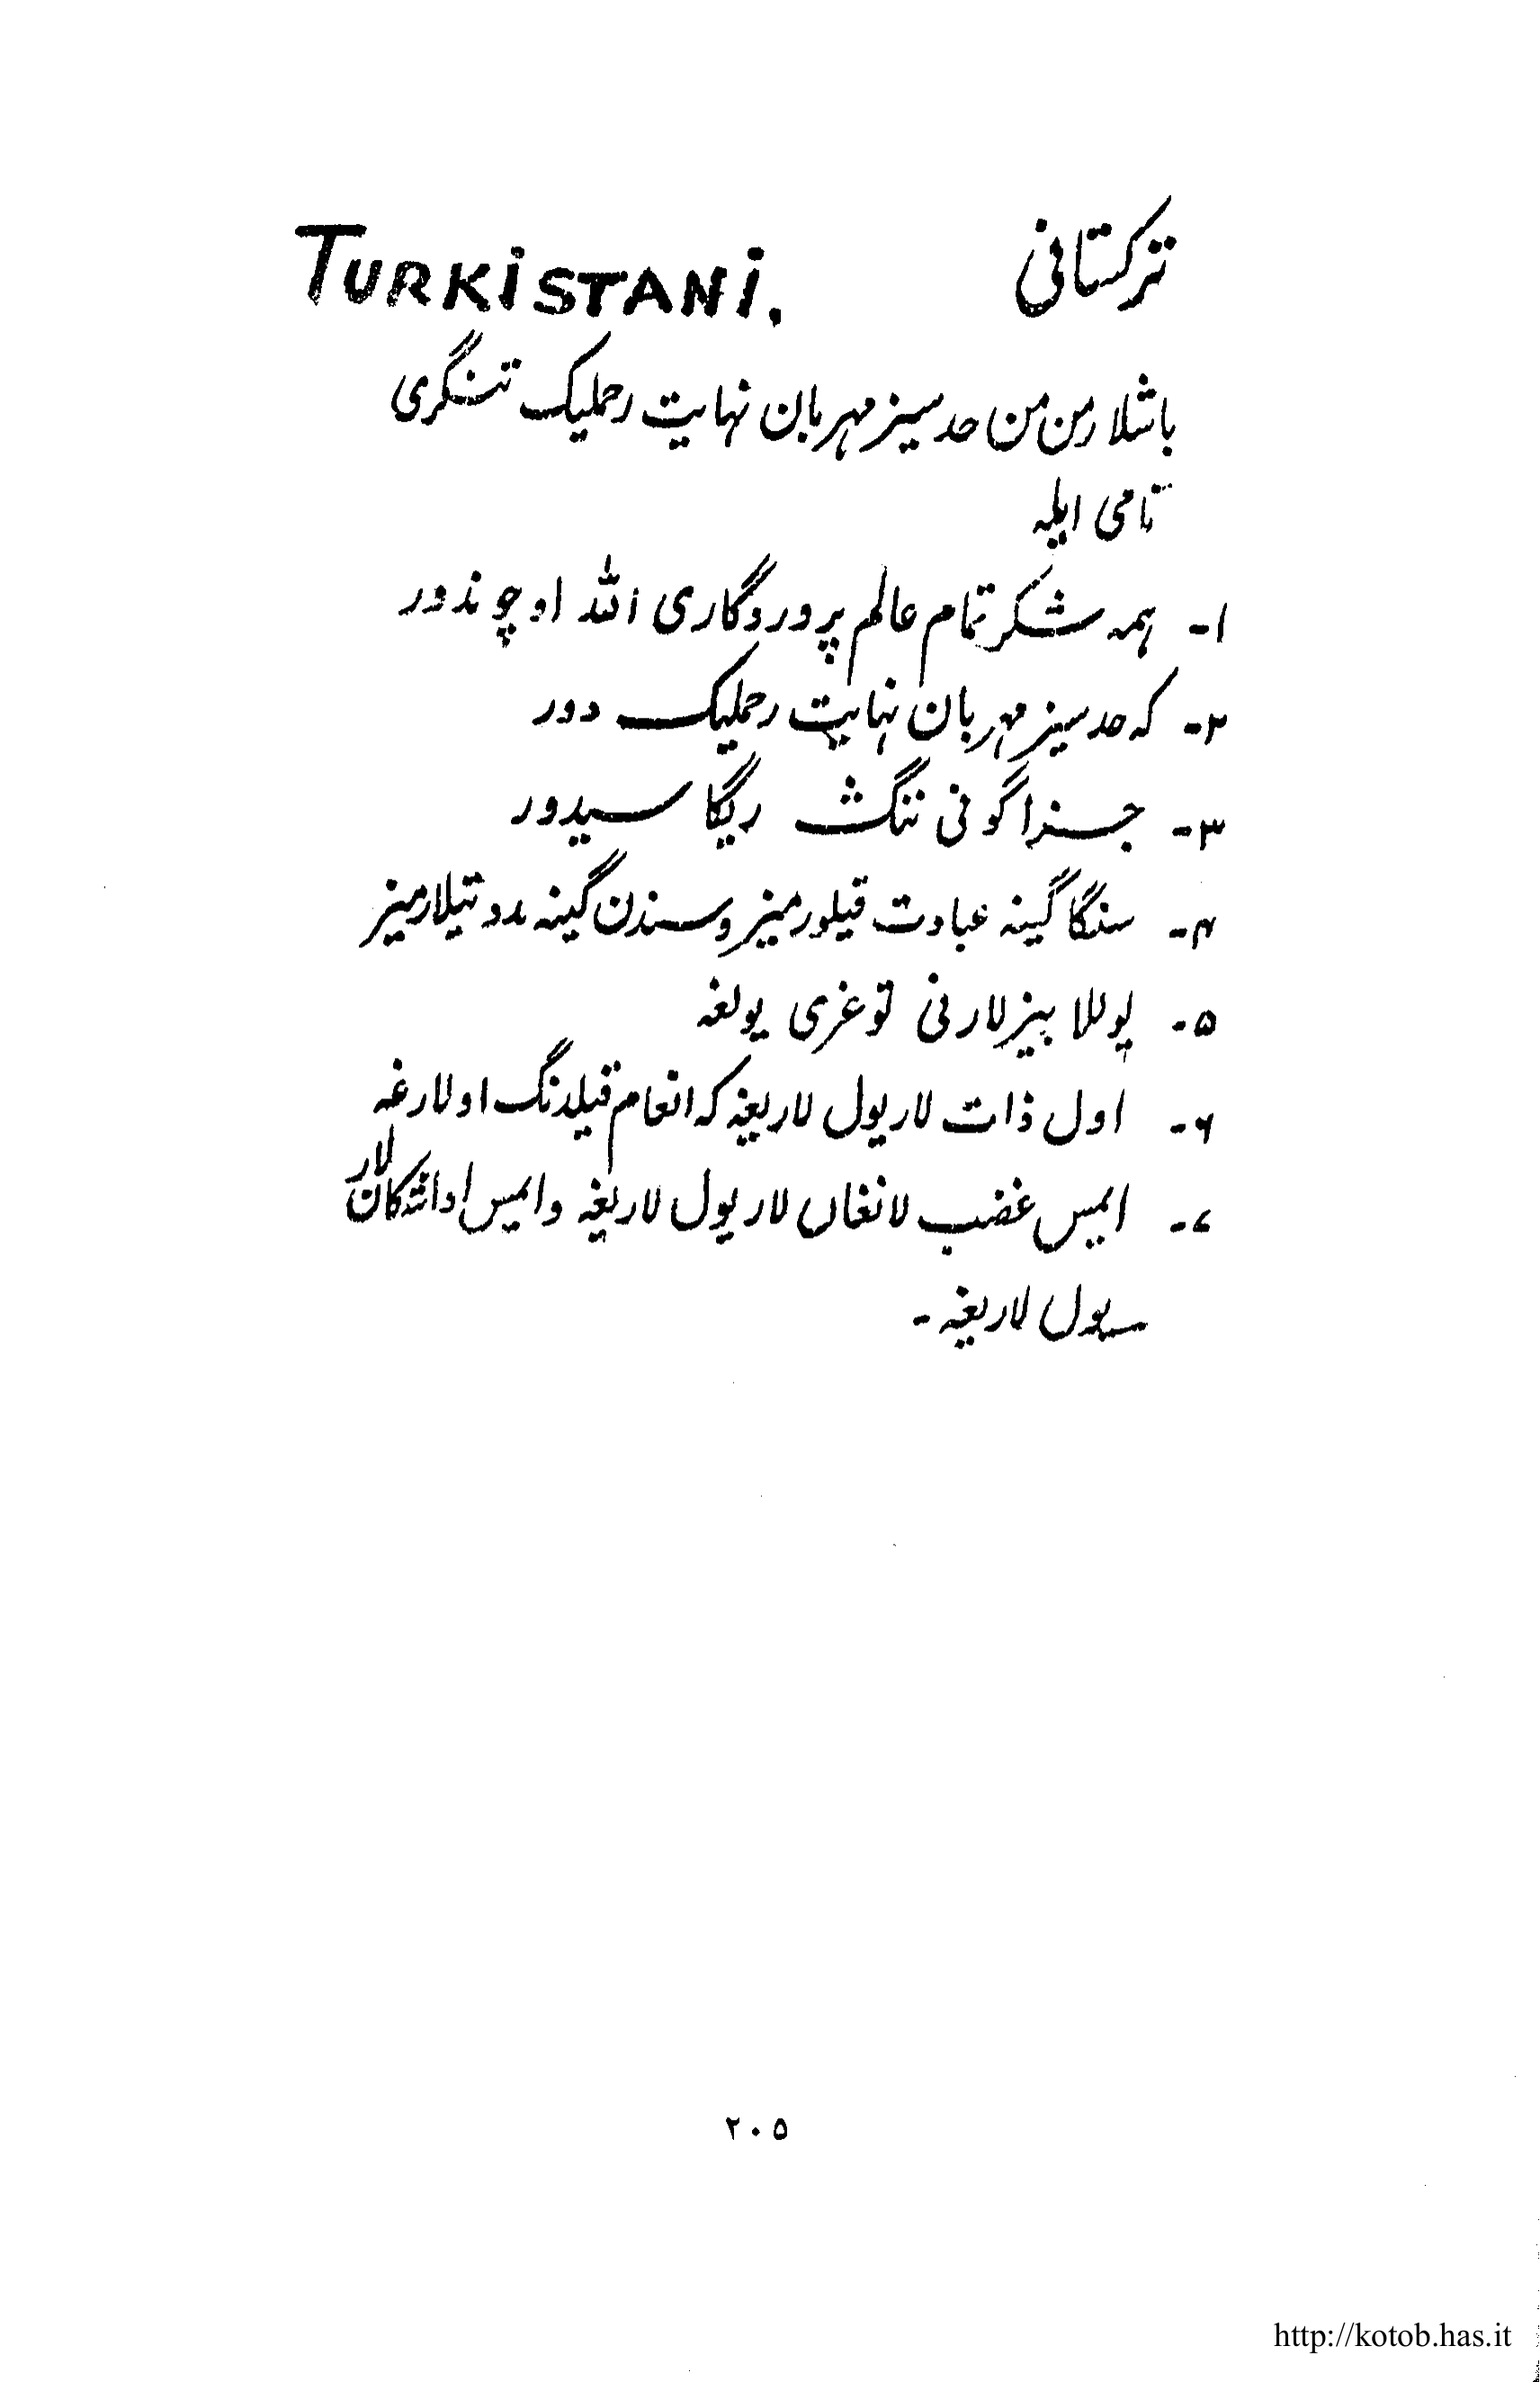 TURKiSTANi. ترکستانی
باشلارمن من حدسیز مهربان نهایت رحملیک تنگری
نامی ایله
۱- همه شکر تمام عالم پروردگاری الله اوچوندور
۲- که حدسیز مهربان نهایت رحملیک دور
۳- جزا گونی ننگ ایگاسیدور
۴- سنگا گینه عبادت قیلورمیز و سندن گینه مدد تیلارمیز
۵- یوللا بیزلارنی توغری یولغه
۶- اول ذات لار یول لاریغه که انعام قیلدنگ اولارغه
۷- ایمس غضب لانغان لار یول لاریغه و ایمس اداشکان لار
یول لاریغه -
۲۰۵
http://kotob.has.it